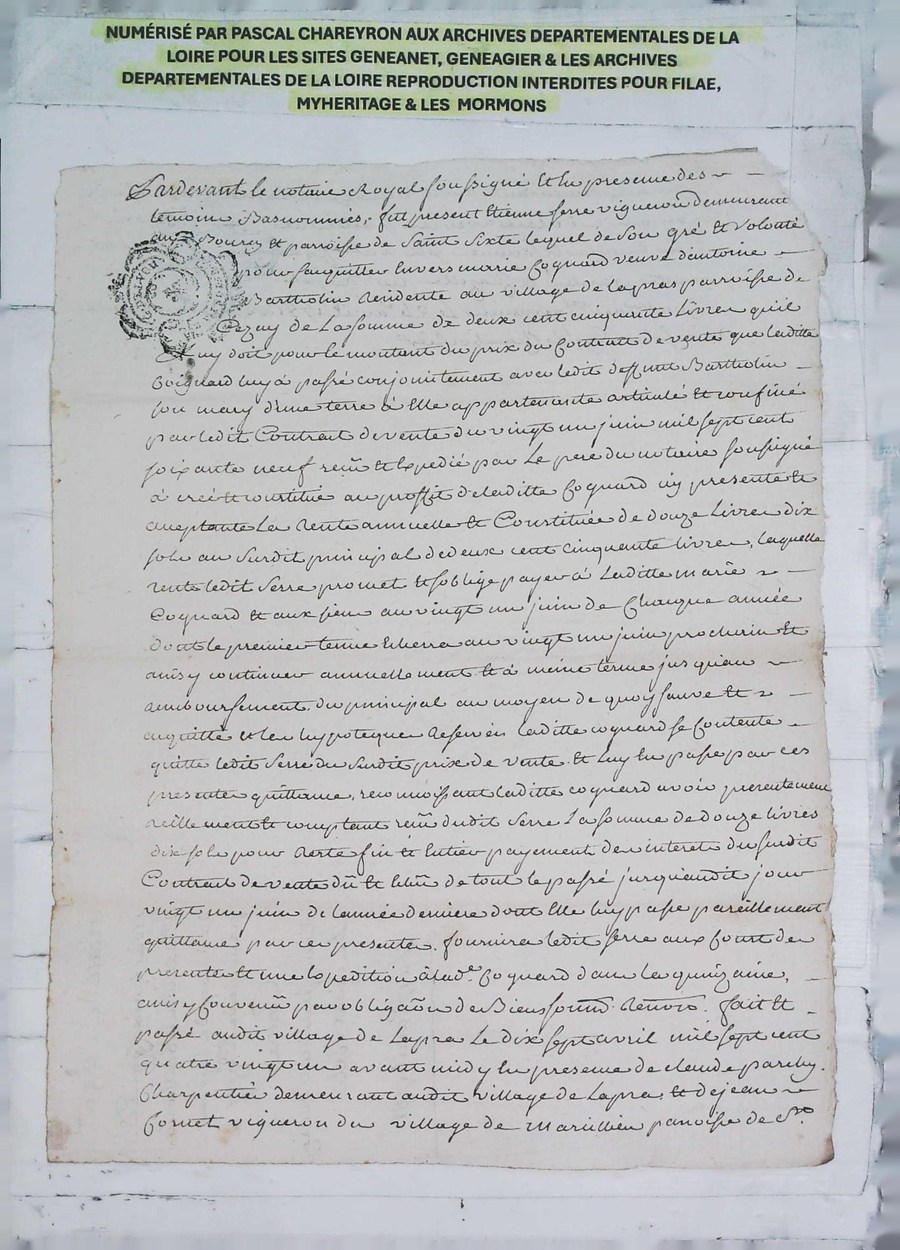 NUMÉRISÉ PAR PASCAL CHAREYRON AUX ARCHIVES DEPARTEMENTALES DE LA
LOIRE POUR LES SITES GENEANET, GENEAGIER & LES ARCHIVES
DEPARTEMENTALES DE LA LOIRE REPRODUCTION INTERDITES POUR FILAE,
MYHERITAGE & LES MORMONS
Pardevant le notaire Royal soussigné et en presence des
temoins Basnommés, fut present Etienne serre vigneron demeurant
Bourg et parroisse de Saint Sixte lequel de son gré et volonté
pour s'aquitter envers marie Coquard veuve d'antoine
Bartholin Residente au village de lapras parroisse de
Cezay de La somme de deux cent cinquante Livres qu'il
luy doit pour le montant du prix du Contrat de vente que laditte
Coignard luy à passé conjointement avec ledit deffunt Bartholin
son mary d'une terre à Elle appartenante articulé et confiné
par ledit Contrat de vente du vingt un juin mil sept cent
soixante neuf reçu et Expedié par Le pere du notaire soussigné
à creé et constitué au proffit de laditte Coquard icy presente et
aceptante La Rente annuelle et Constituée de douze Livres dix
sols au Surdit principal de deux cent cinquante livres, laquelle
rente ledit Serre promet et s'oblige payer à Laditte marie
Coquard et aux siens au vingt un juin de Chaque année
dont le premier terme Echerra au vingt un juin prochain et
ainsy continuer annuellement et à meme terme jusqu'au
Remboursement du principal au moyen de quoy sauve et
acquitté et les hypoteques Reservés laditte coquard se contente
quitte ledit Serre du Surdit prix de vente et luy en passe par ces
presentes quittance, reconnoissant laditte coquard avoir presentement
reellement et comptant reçu dudit Serre La somme de douze livres
dix sols pour Reste fin et Entier payement des interets du susdit
Contrat de vente dû et Echu de tout le passé jusqu'audit jour
vingt un juin de l'année derniere dont Elle luy passe pareillement
quittance par ces presentes. fournira ledit serre aux Court des
presentes et une Expedition à lade. Coquard dans la quinzaine,
ainsy Convenu par obligaôn de Biens Renvoi. fait et
passé audit village de Lapra Le dix sept avril mil sept cent
quatre vingt un avant midy En presence de claude
Charpentié demeurant audit village de Lapra, et de jean
Cornet vigneron du village de paroisse de St.